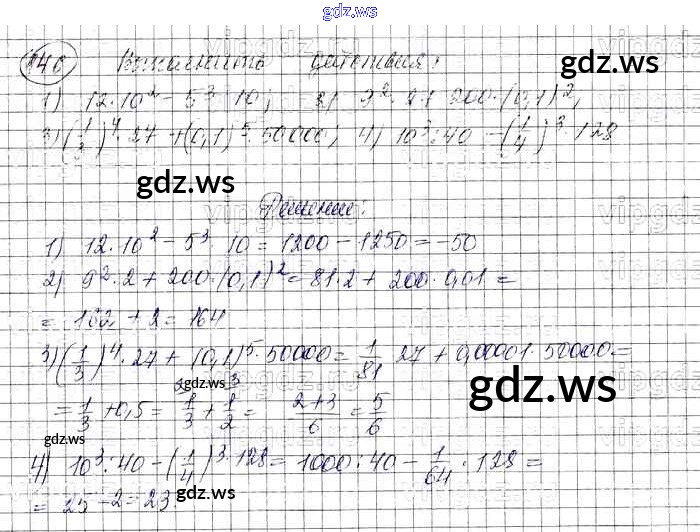 gdz.ws
146 Выполнить действия:
gdz.ws
1) 12·10² - 5³·10; 2) 9²·2+200·(0,1)²;
3) (1/3)⁴·27+(0,1)⁵·50000; 4) 10³:40-(1/4)³·128
gdz.ws
Решение:
gdz.ws
1) 12·10² - 5³·10 = 1200 - 1250 = -50
2) 9²·2 + 200·(0,1)² = 81·2 + 200·0,01 =
= 162 + 2 = 164
3) (1/3)⁴·27 + (0,1)⁵·50000 = 1/81 27 + 0,00001·50000 =
gdz.ws
gdz.ws
= 1/3 + 0,5 = 1/3 + 1/2 = 2+3/6 = 5/6
4) 10³:40 - (1/4)³·128 = 1000:40 - 1/64·128 =
= 25 - 2 = 23.